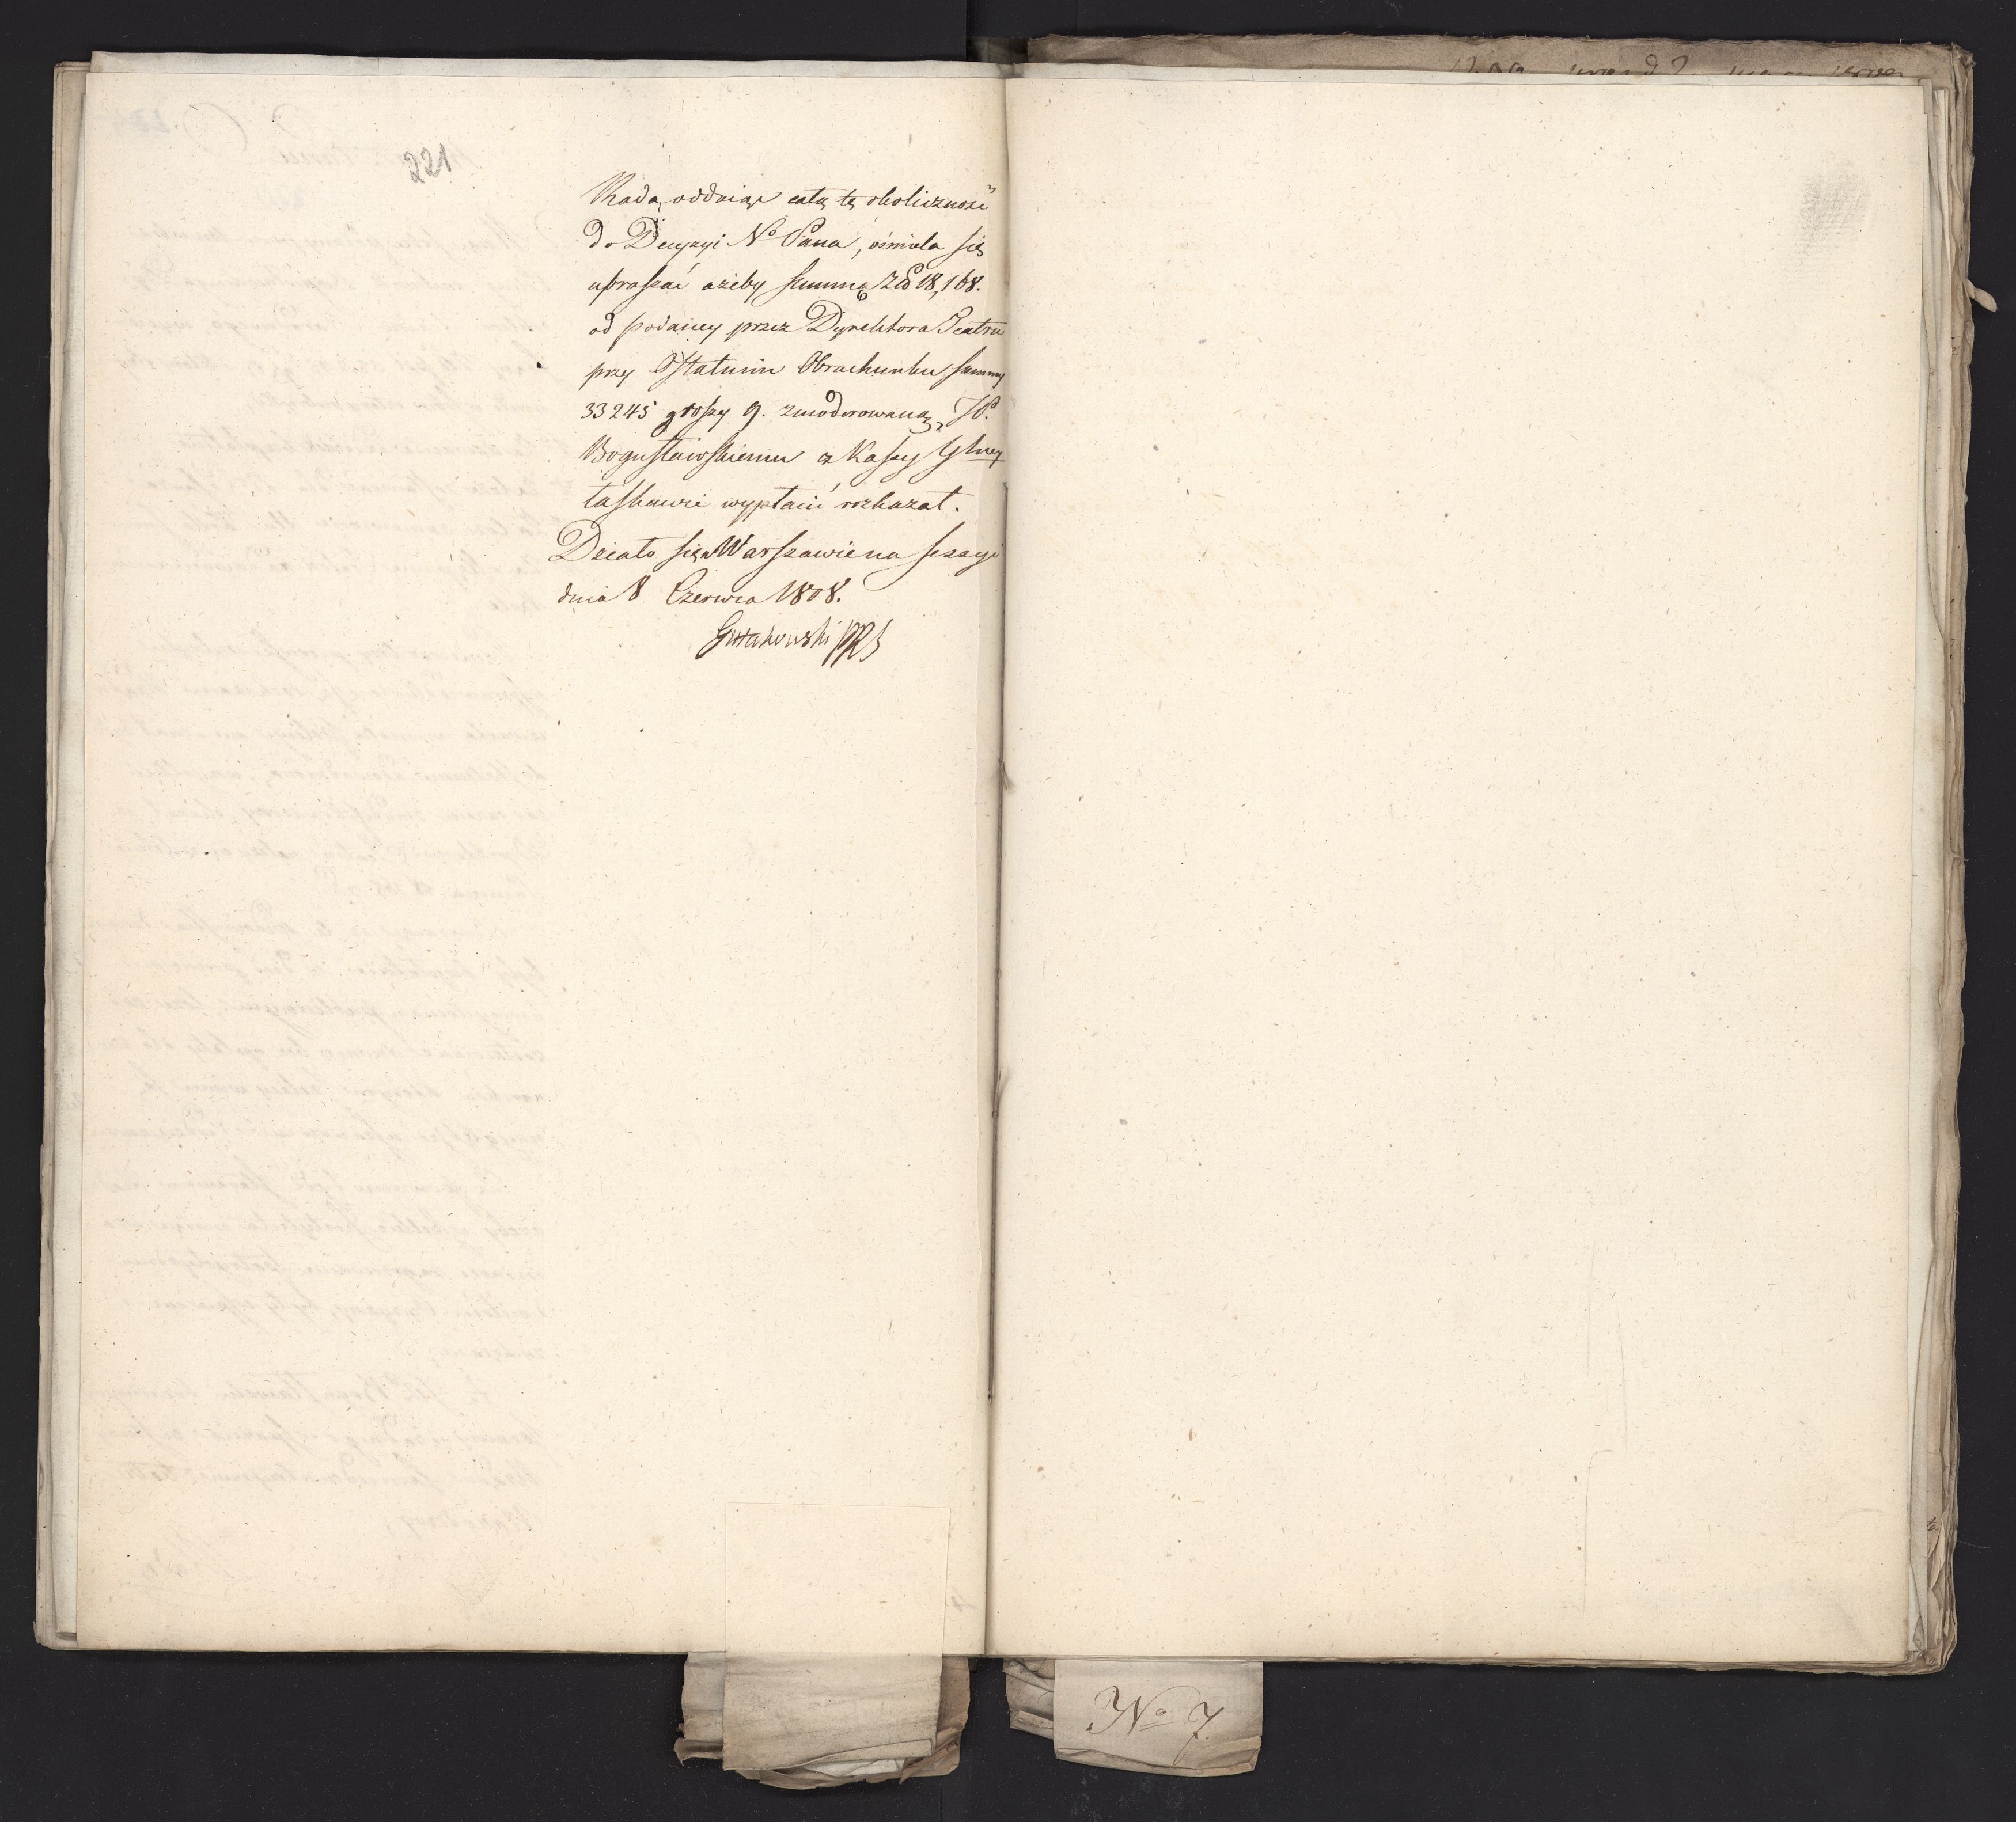 221
Rada, oddaiąc całą tę okoliczność
do Decyzyi No Pana, ośmiela się
upraszać ażeby summę Zło 18,168.
od podaney przez Dyrektora Teatru
przy Ostatnim Obrachunku summy
33245 groszy 9. zmoderowaną, JP.
Bogusławskiemu z Kassy Głney
łaskawie wypłacić rozkazał.
Działo się w Warszawie na sessyi
dnia 8 Czerwca 1808.
Gutakowski PRS
No 7.